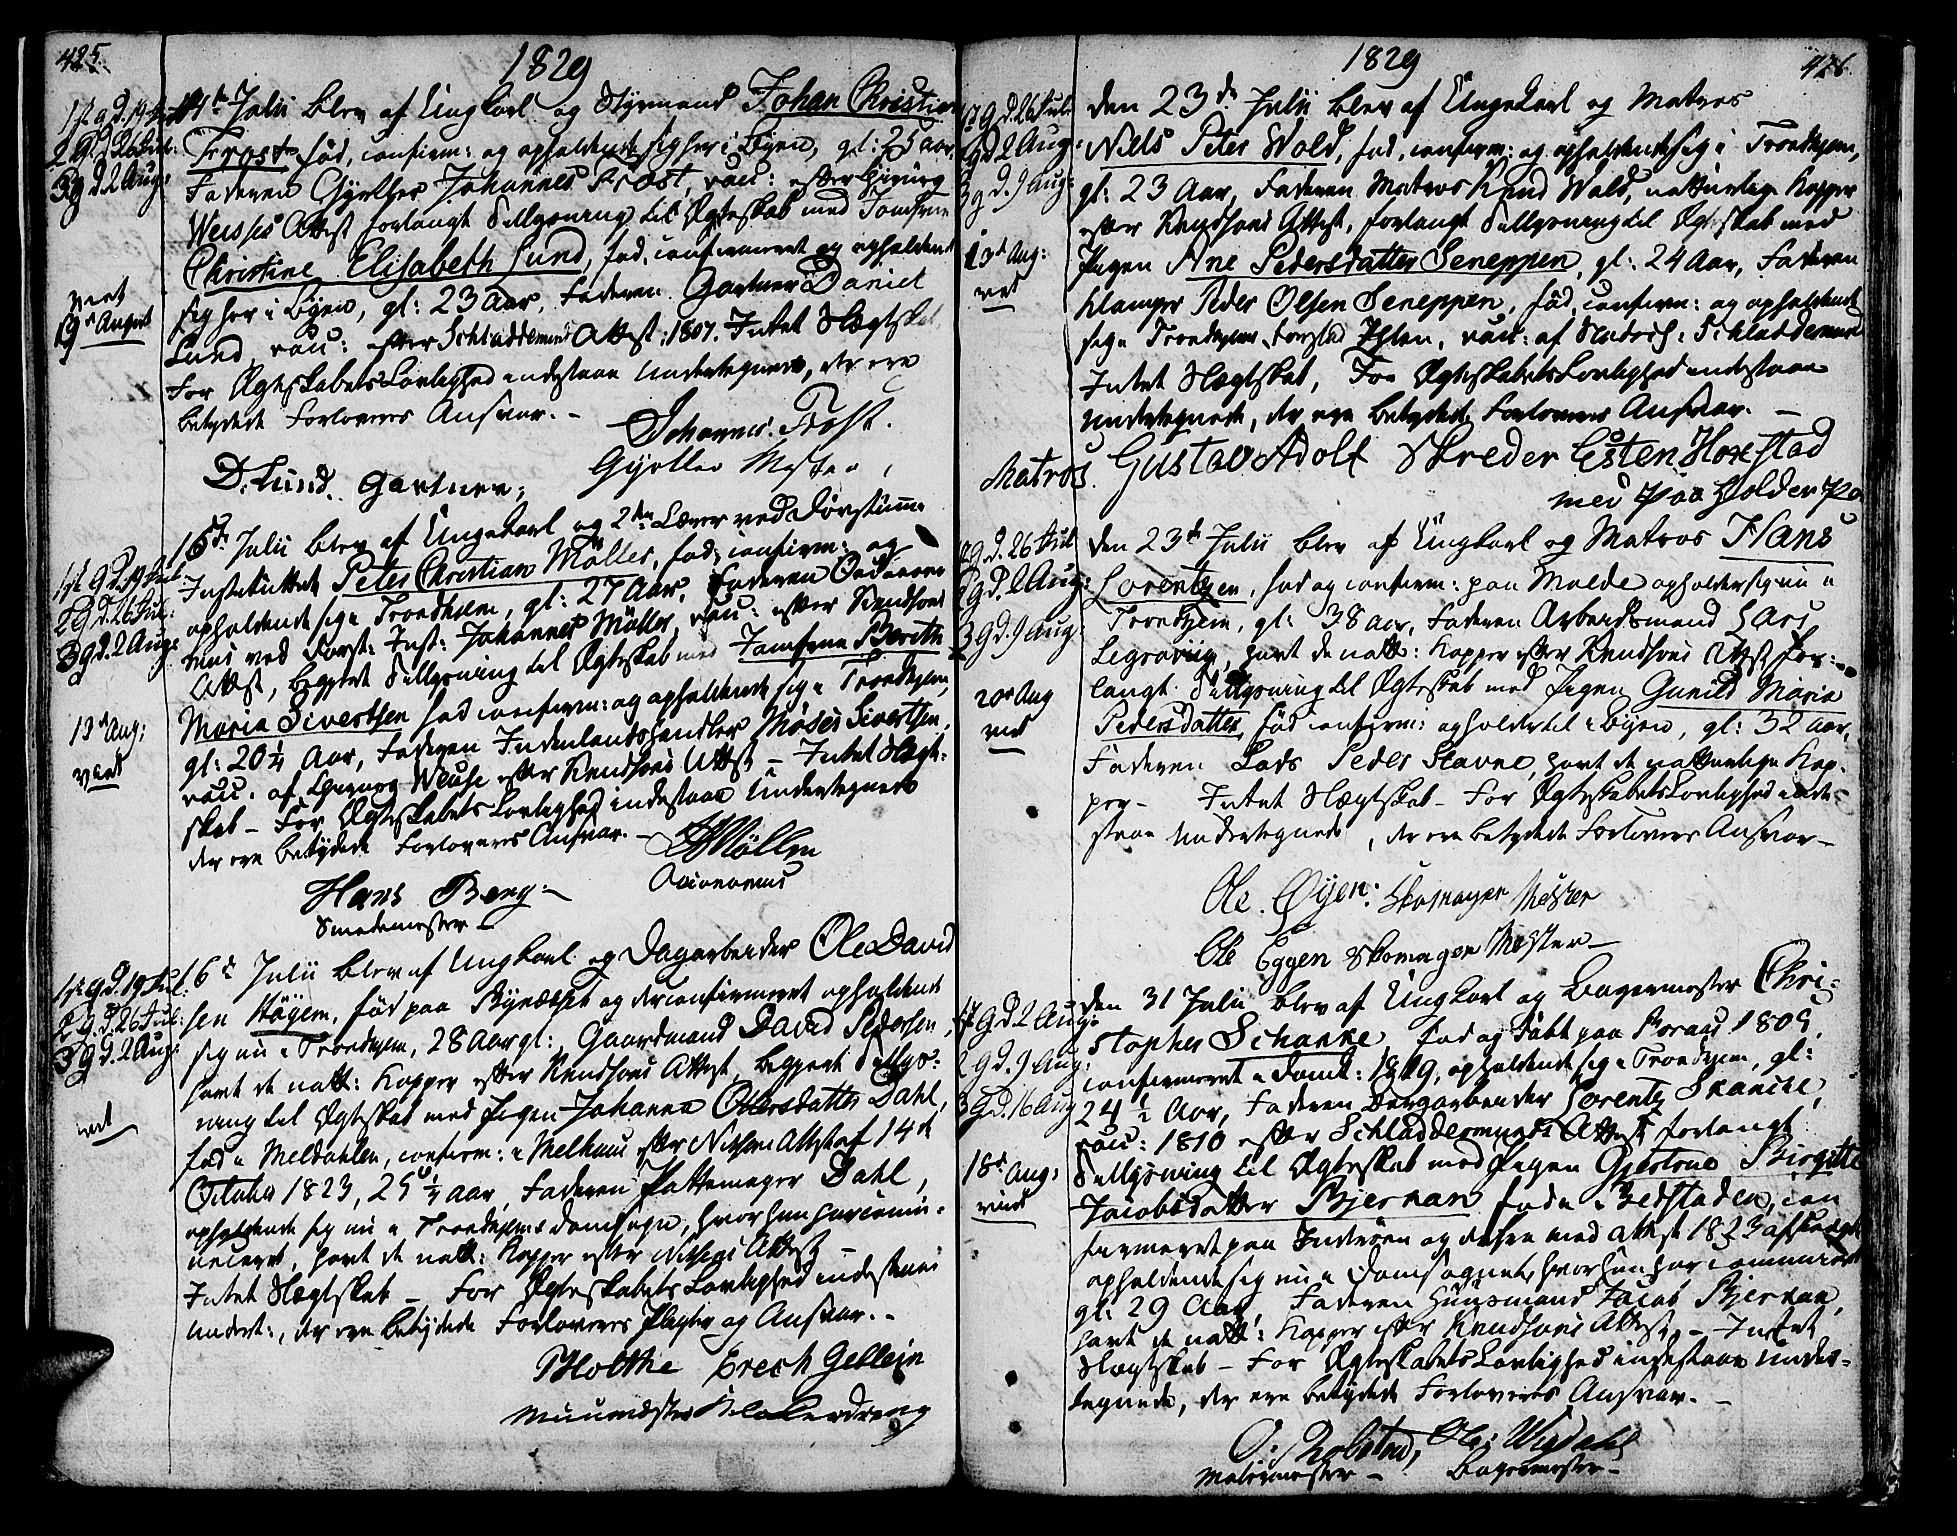 425.
1829
1st g d. 19 Jul:
2 g d. 26 Jul:
3 g d. 2 Aug:
14de Julii blev af Ungkarl og Styrmand Johan Christian
Frost, fød, confirm: og opholdende sig her i Byen, gl: 25 aar
Faderen Gjørtler Johannes Frost, vac: efter Chirurg
Weisses Attest forlangt Tillysning til Ægteskab med Jomfrue
Christine Elisabeth Lund, fød, confirmeret og opholdende
sig her i Byen, gl: 23 aar, Faderen Gartner Daniel
Lund, vac: efter Schladdemunds Attest: 1807. Intet Slægtskab.
For Ægteskabets Lovlighed indestaae Undertegnede, der ere
betydede Forloveres Ansvar. -
viet
19de August
Johannes Frost.
Gjørtler Mester,
D. Lund. Gartner;
1st g d. 19 Jul:
2 g d. 26 Jul:
3 g d. 2 Aug:
16de Julii blev af Ungekarl og 2den Lærer ved Døvstumme
Institutet Peter Christian Møller, fød, confirm: og
opholdende sig i Trondhjem, gl: 27 Aar, Faderen Oeconomus
ved Johannes Møller, vac: efter Knudsons
Attest, begjert Tillysning til Ægteskab med Jomfrue Berith
Maria Sivertsen fød confirm: og opholdende sig i Trondhjem,
gl: 20¼ Aar, Faderen Indenlandshandler Moses Sivertsen,
vac: af Chirurg Weisse efter Knudsons Attest - Intet Slægt-
skab - For Ægteskabets Lovlighed indestaae Undertegnede
der ere betydede Forloveres Ansvar. -
13de Aug:
viet
Møller
Oeconomus
Hans Berg -
Smedemester
1st g d. 19 Jul:
2 g d. 26 Jul:
3 g d. 2 Aug:
16de Julii blev af Ungkarl og Dagarbeider Ole David
sen Høyem, fød paa Bynæsset og der confirmeret opholdende
sig nu i Trondhjem, 28 Aar gl:, Gaardmand David Pedersen,
havt de natt: Kopper efter Knudsons Attest, begjert Tillys-
ning til Ægteskab med Pigen Johanna Olersdatter Dahl,
fød i Meldahlen, confirm: i Melhuus efter Attest af 14de
October 1823, 25½ aar, Faderen Pottemager Dahl,
opholdende sig nu i Trondhjems Domsogn, hvor hun har commu-
niceret, havt de natt: Kopper efter Attest -
Intet Slægtskab - For Ægteskabets Lovlighed indestaae
Undert:, der ere betydede Forloveres Pligter og Ansvar. -
viet
Holthe Erech Gellein
Muurmester
1829
426.
1st g d. 26 Jul:
2 g d. 2 Aug:
3 g d. 9 Aug:
Den 23de Julii blev af Ungekarl og Matros
Niels Peter Wold, fød, confirm: og opholdende sig i Trondhjem,
gl: 23 Aar, Faderen Matros Knud Wold, natturlige Kopper
efter Knudsons Attest, forlangt Tillysning til Ægteskab med
Pigen Ane Pedersdatter Seneppen, gl: 24 Aar, Faderen
Klamper Peder Olsen Seneppen, fød, confirm: og opholdende
sig i Trondhjems Forstad Ihlen, vac: af Schladdemund
Intet Slægtskab, For Ægteskabets Lovlighed indestaae
Undertegnede, der ere betydede Forloveres Ansvar. -
13de Aug:
viet
Matros. Gustav Adolf Skreder Esten Horstad
med Paaholden Pen
1 g d. 26 Jul
2 g d. 2 Aug:
3 g d. 9 Aug:
Den 23de Julii blev af Ungkarl og Matros Hans
Lorentzen, fød og confirm: paa Molde opholder sig nu i
Trondhjem, gl: 38 aar, Faderen Arbeidsmand Lars
havt de natt: Kopper efter Knudsons Attest for-
langt Tillysning til Ægteskab med Pigen Gunild Maria
Pedersdatter, fød confirm: opholder til i Byen, gl: 32 aar,
Faderen Lods Peder Stavne, havt de natturlige Kop-
per - Intet Slægtskab - For Ægteskabets Lovlighed inde-
staae Undertegnede, der ere betydede Forloveres Ansvar -
20de Aug
viet
Ole Øyen: Skomager Mester
Ole Eggen Skomager Mester -
1st g d. 2 Aug:
2 g d. 9 Aug:
3 g d. 16 Aug
Den 31 Julii blev af Ungkarl og Bagermester Chri-
stopher Schanke, fød og døbt paa Roraas 1805,
confirmeret i Domk: 1819, opholdende sig i Trondhjem, gl:
24½ Aar, Faderen Bergarbeider Lorentz Skancke,
vac: 1810 efter Schladdermunds Attest, forlangt
Tillysning til Ægteskab med Pigen Gjertrue Birgitte
Jacobsdatter Bjernan fød i Bedstaden, con
firmeret paa Inderøen og derfra med Attest 1823
opholdende sig nu i Domsognet, hvor hun har communiceret
gl: 29 Aar, Faderen Huusmand Jacob Bjernan,
havt de natt: Kopper efter Knudsons Attest, - Intet
Slægtskab - For Ægteskabets Lovlighed indestaae Under-
tegnede, der ere betydede Forloveres Ansvar. -
18de Aug:
viet
Ole Wigdahl
Malermester - Bagermester -